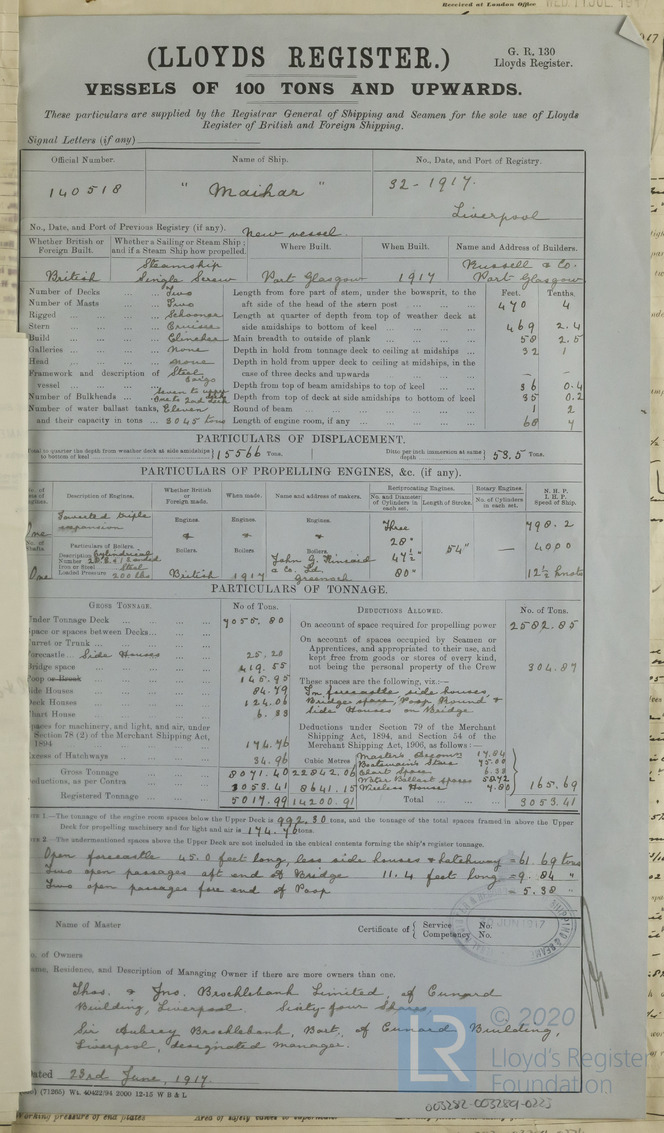 Received at London Office
(LLOYDS REGISTER.)
G. R. 130
Lloyds Register.
VESSELS OF 100 TONS AND UPWARDS.
These particulars are supplied by the Registrar General of Shipping and Seamen for the sole use of Lloyds
Register of British and Foreign Shipping.
Signal Letters (if any)
Official Number. Name of Ship. No., Date, and Port of Registry.
140518 "Maihar" 32-1917.
Liverpool
No., Date, and Port of Previous Registry (if any). New vessel.
Whether British or Foreign Built. Whether a Sailing or Steam Ship; and if a Steam Ship how propelled. Where Built. When Built. Name and Address of Builders.
British Steamship Single Screw Port Glasgow 1917 Russell & Co. Port Glasgow
Number of Decks Two Length from fore part of stem, under the bowsprit, to the Feet. Tenths.
Number of Masts Two aft side of the head of the stern post 470 4
Rigged Schooner Length at quarter of depth from top of weather deck at
Stern side amidships to bottom of keel 469 2.4
Build Clincher Main breadth to outside of plank 58 2.5
Galleries None Depth in hold from tonnage deck to ceiling at midships 32 1
Head None Depth in hold from upper deck to ceiling at midships, in the
Framework and description of vessel Steel case of three decks and upwards - -
Depth from top of beam amidships to top of keel 36 0.4
Number of Bulkheads Seven to upper One to 2nd deck Depth from top of deck at side amidships to bottom of keel 35 0.2
Number of water ballast tanks, Eleven Round of beam 1 2
and their capacity in tons 3045 tons Length of engine room, if any 68 4
PARTICULARS OF DISPLACEMENT.
Total to quarter the depth from weather deck at side amidships to bottom of keel 15566 Tons. Ditto per inch immersion at same depth 53.5 Tons.
PARTICULARS OF PROPELLING ENGINES, &c. (if any).
Description of Engines. Whether British or Foreign made. When made. Name and address of makers. Reciprocating Engines. Rotary Engines. N. H. P. I. H. P. Speed of Ship.
No. and Diameter of Cylinders in each set. Length of Stroke. No. of Cylinders in each set.
Inverted triple expansion Engines. Engines. Engines. Three 798.2
One & & & 28"
Particulars of Boilers. Boilers. Boilers Boilers. 47½" 54" - 4000
Description Cylindrical
Number
Iron or Steel Steel John G. Kincaid & Co. Ld.
One Loaded Pressure 200 lbs British 1917 Greenock 80" 12½ knots
PARTICULARS OF TONNAGE.
GROSS TONNAGE. No. of Tons. DEDUCTIONS ALLOWED. No. of Tons.
Under Tonnage Deck 7055.80 On account of space required for propelling power 2582.85
Space or spaces between Decks On account of spaces occupied by Seamen or
Turret or Trunk Apprentices, and appropriated to their use, and
Forecastle Side Houses 25.20 kept free from goods or stores of every kind,
Bridge space 419.55 not being the personal property of the Crew 304.87
Poop or Break 145.95 These spaces are the following, viz.:-
Side Houses 84.79 In forecastle side houses,
Deck Houses 124.06 Bridge space, Poop Round &
Chart House 6.33 Side Houses on Bridge
Spaces for machinery, and light, and air, under Deductions under Section 79 of the Merchant
Section 78 (2) of the Merchant Shipping Act, Shipping Act, 1894, and Section 54 of the
1894 174.76 Merchant Shipping Act, 1906, as follows:-
Excess of Hatchways 34.96 Cubic Metres Master's Accomn 17.84
Boatswain's Store 75.00
Gross Tonnage 8071.40 22842.06 Chart Space 6.33
Deductions, as per Contra 3053.41 8641.15 Water Ballast spaces 58.72
Wireless House 7.80 165.69
Registered Tonnage 5017.99 14200.91 Total 3053.41
NOTE 1.—The tonnage of the engine room spaces below the Upper Deck is 992.30 tons, and the tonnage of the total spaces framed in above the Upper
Deck for propelling machinery and for light and air is 174.76 tons.
NOTE 2.—The undermentioned spaces above the Upper Deck are not included in the cubical contents forming the ship's register tonnage.
Open forecastle 45.0 feet long, less side houses & hatchway = 61.69 tons
Two open passages aft end of Bridge 11.4 feet long = 9.84 "
Two open passages fore end of Poop = 5.38 "
Name of Master Certificate of { Service No.
Competency No.
JUN 1917
No. of Owners
Name, Residence, and Description of Managing Owner if there are more owners than one.
Thos. & Jno. Brocklebank Limited, of Cunard
Building, Liverpool. Sixty four Shares,
Sir Aubrey Brocklebank, Bart, of Cunard Building,
Liverpool, designated manager.
Dated 23rd June, 1917.
(71265) Wt. 40422/94 2000 12-15 W B & L
© 2020
LR
Lloyd's Register
Foundation
003282-003289-0223
Working pressure of end plates Area of safety valves to superheater